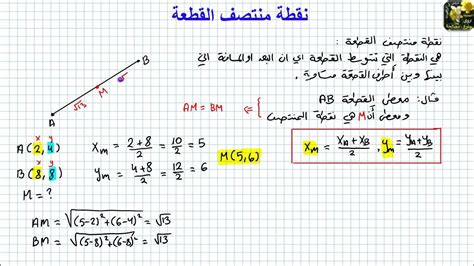 نقطة منتصف القطعة
نقطة منتصف القطعة :
هي النقطة التي تتوسط القطعة اي ان البعد او المسافة التي
بينها وبين أطراف القطعة متساوية .
مثال : معطى القطعة AB
ومعطى أن M هي نقطة المنتصف
AM = BM ⇐
B
M
√13
A
x y
A ( 2 , 4 )
x y
B ( 8 , 8 )
M = ?
Xm = (2+8)/2 = 10/2 = 5
ym = (4+8)/2 = 12/2 = 6
M(5,6)
Xm = (XA + XB)/2 , ym = (yA + yB)/2
AM = √((5-2)²+(6-4)²) = √13
BM = √((5-8)²+(6-8)²) = √13